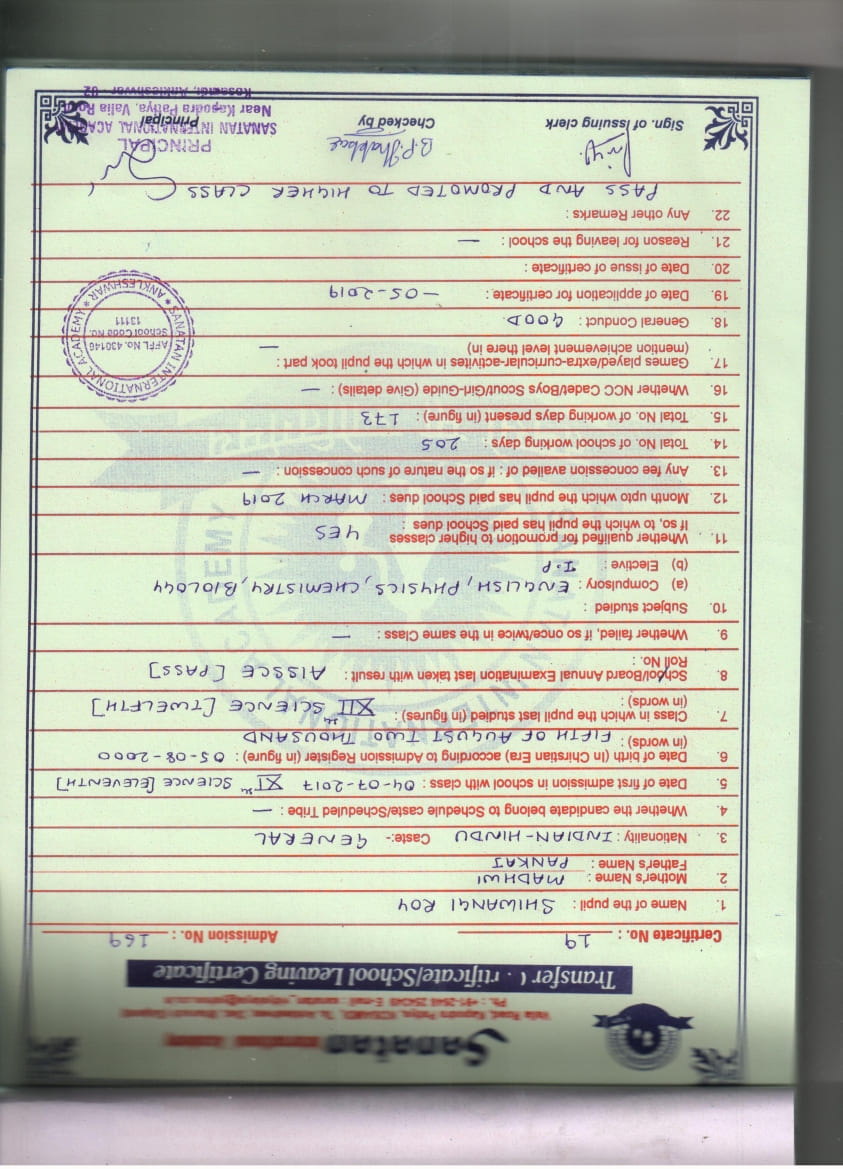 Sanatan International Academy
Transfer Certificate/School Leaving Certificate
Certificate No. : 19 Admission No. : 169
1. Name of the pupil : SHIWANGI ROY
2. Mother's Name : MADHWI
Father's Name : PANKAJ
3. Nationality : INDIAN-HINDU Caste:- GENERAL
4. Whether the candidate belong to Schedule caste/Scheduled Tribe : —
5. Date of first admission in school with class : 04-07-2017 XI SCIENCE [ELEVENTH]
6. Date of birth (In Chirstian Era) according to Admission Register (in figure) : 05-08-2000
(in words) : FIFTH OF AUGUST TWO THOUSAND
7. Class in which the pupil last studied (in figures) : XII SCIENCE [TWELFTH]
(in words) :
8. School/Board Annual Examination last taken with result : AISSCE [PASS]
Roll No. :
9. Whether failed, if so once/twice in the same Class : —
10. Subject studied :
(a) Compulsory : ENGLISH, PHYSICS, CHEMISTRY, BIOLOGY
(b) Elective : I.P
11. Whether qualified for promotion to higher classes YES
If so, to which the pupil has paid School dues :
12. Month upto which the pupil has paid School dues : MARCH 2019
13. Any fee concession availed of : if so the nature of such concession : —
14. Total No. of school working days : 205
15. Total No. of working days present (in figure) : 173
16. Whether NCC Cadet/Boys Scout/Girl-Guide (Give details) : —
17. Games played/extra-curricular-activites in which the pupil took part :
(mention achievement level there in) —
18. General Conduct : GOOD.
19. Date of application for certificate : —05-2019
20. Date of issue of certificate :
21. Reason for leaving the school : —
22. Any other Remarks :
PASS AND PROMOTED TO HIGHER CLASS
SANATAN INTERNATIONAL ACADEMY * ANKLESHWAR *
AFFL No. 430146
School Code No.
13111
B.P. Thakkar
Sign. of issuing clerk Checked by Principal
PRINCIPAL
SANATAN INTERNATIONAL ACADE
Near Kapodra Patiya, Valia Road
Kosamdi, Ankleshwar - 02
SANATAN INTERNATIONAL ACADEMY